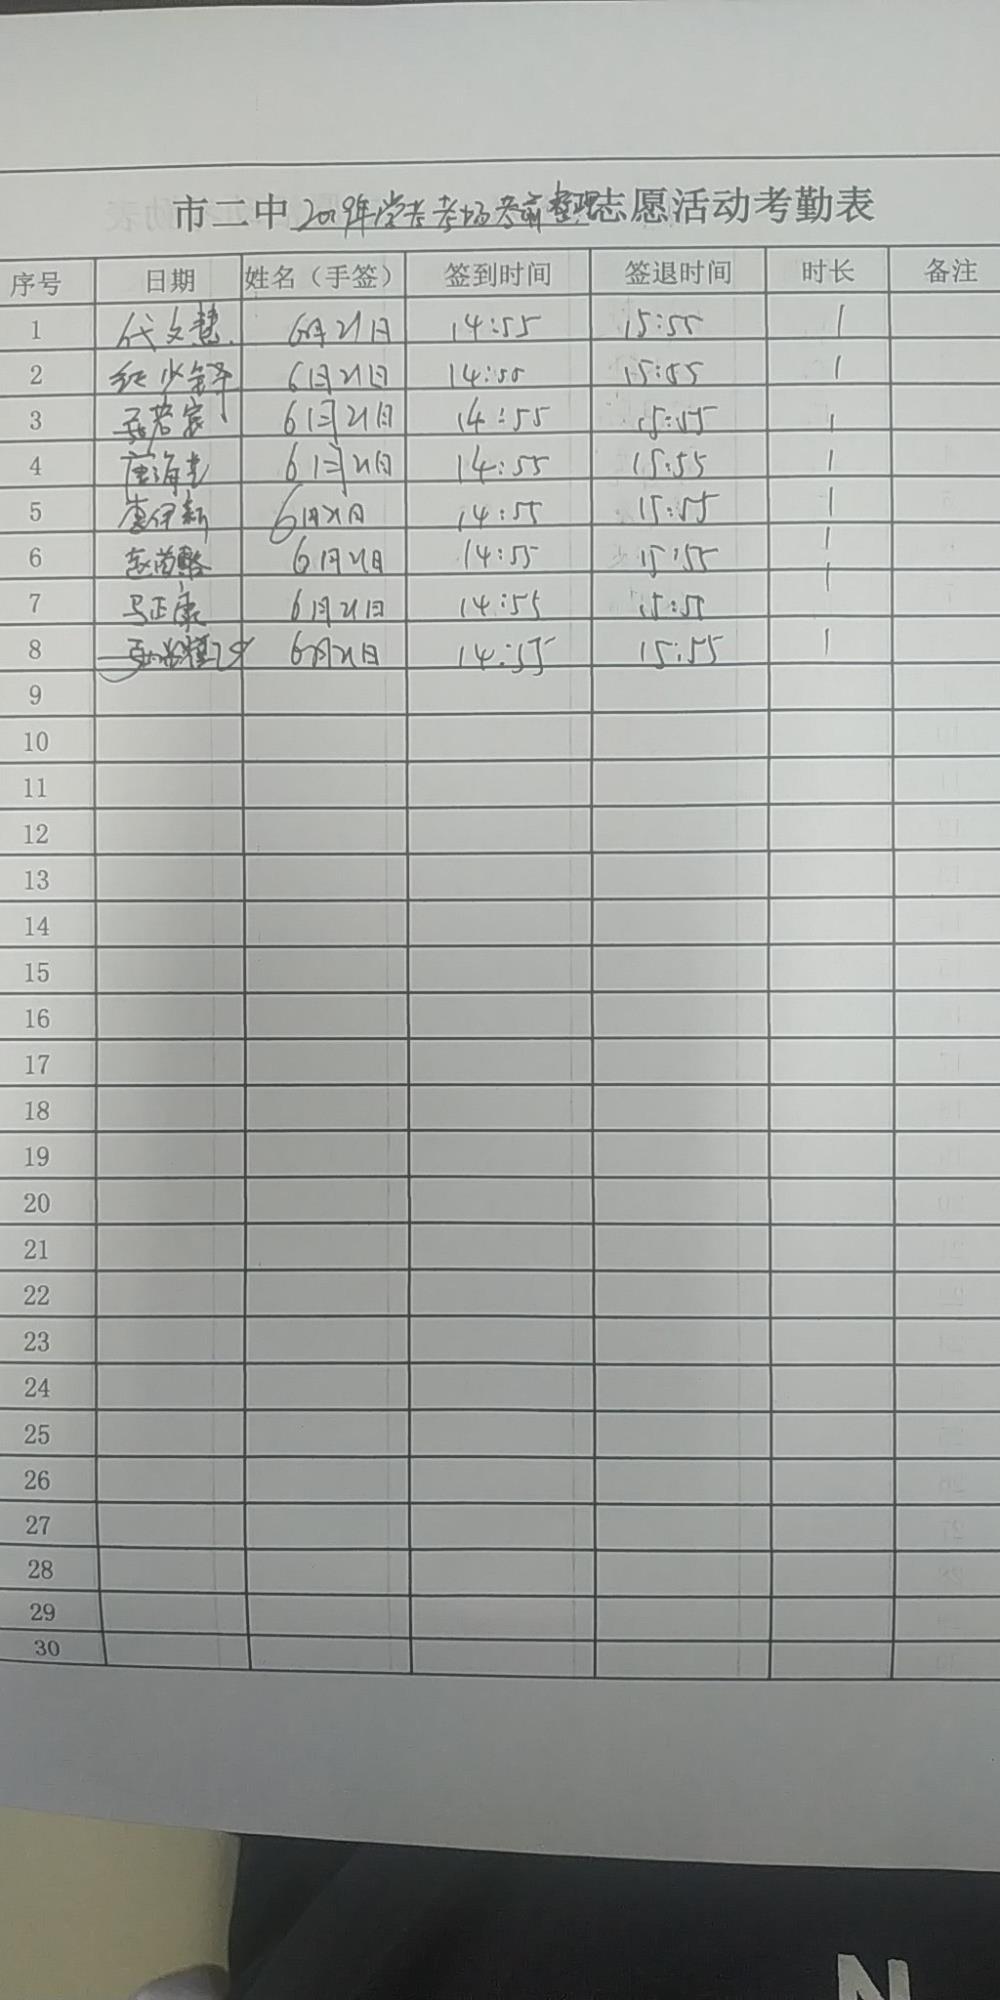 市二中2019年学考考场考前整理志愿活动考勤表
序号 日期 姓名（手签） 签到时间 签退时间 时长 备注
1 代文慧 6月21日 14:55 15:55 1
2 纪少 6月21日 14:55 15:55 1
3 若宸 6月21日 14:55 15:55 1
4 唐海 6月21日 14:55 15:55 1
5 李伊新 6月21日 14:55 15:55 1
6 赵 6月21日 14:55 15:55 1
7 马正康 6月21日 14:55 15:55 1
8 6月21日 14:55 15:55 1
9
10
11
12
13
14
15
16
17
18
19
20
21
22
23
24
25
26
27
28
29
30
N